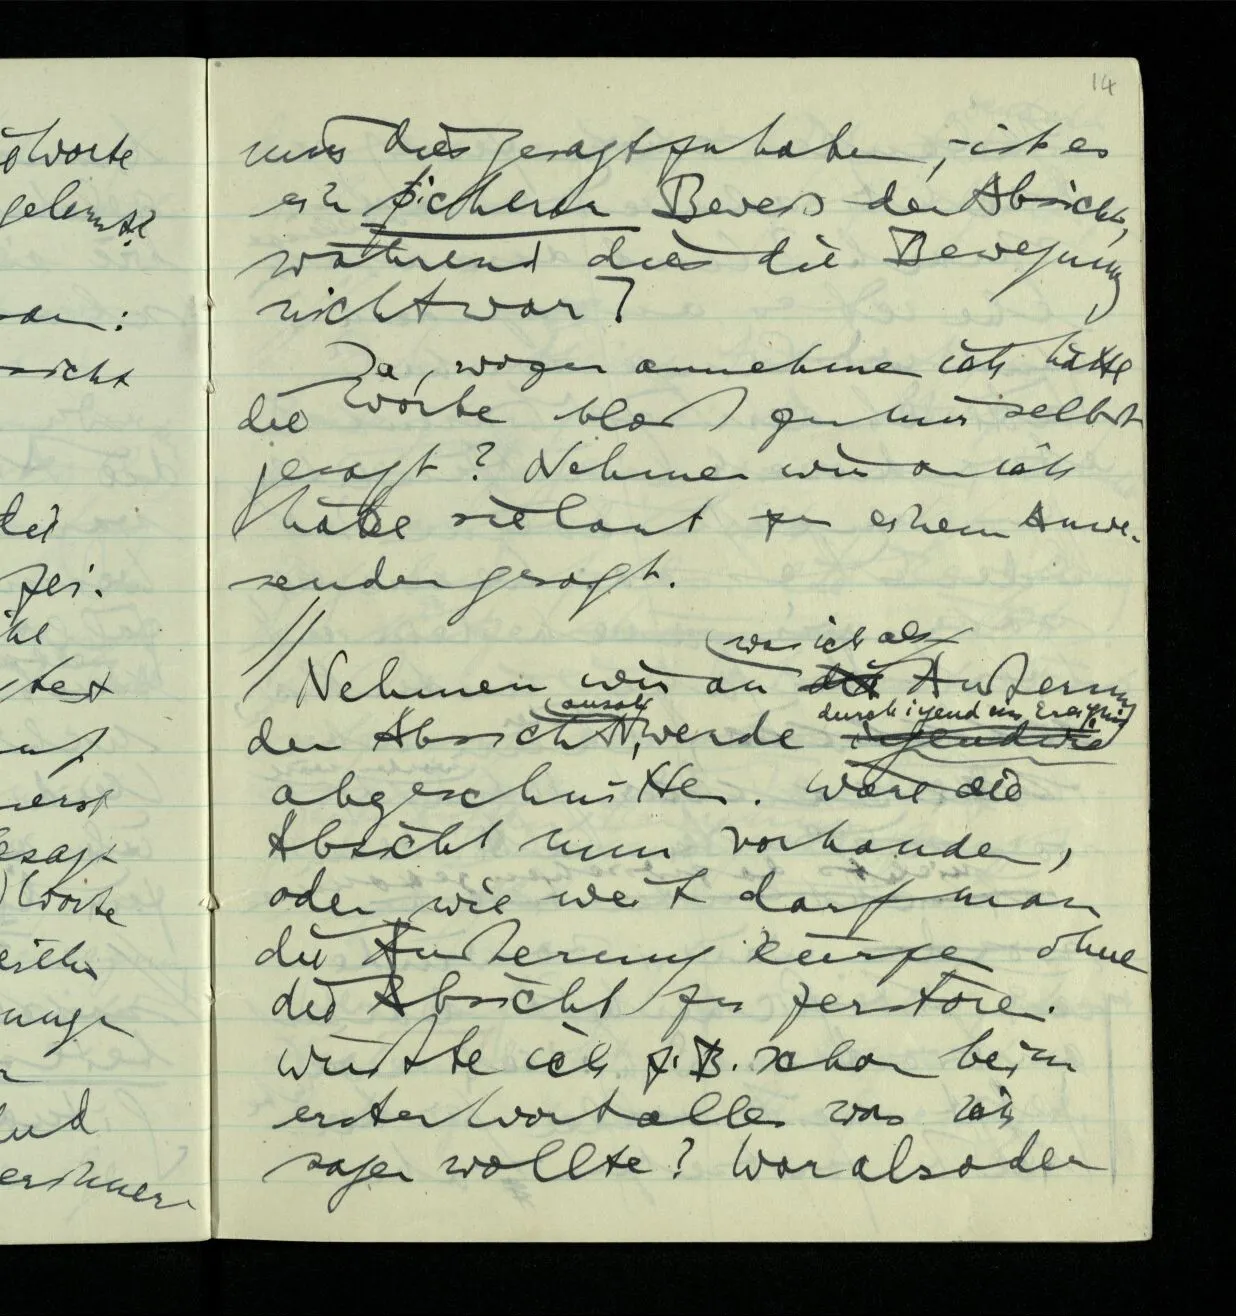 14
uns dies gesagt zu haben, – ist es
ein sicherer Beweis der Absicht,
während dies die Bewegung
nicht war?
Ja, wozu annehmen ich hätte
die Worte bloß zu mir selbst
gesagt? Nehmen wir an ich
habe sie laut zu einem Anwe-
senden gesagt.
// was ich als
Nehmen wir an die Äußerung
ansah durch irgend ein Ereignis
der Absicht, werde irgendwie
abgeschnitten. Wäre die
Absicht nun vorhanden,
oder wie weit darf man
die Äußerung kürzen ohne
die Absicht zu zerstören.
Wußte ich z.B. schon beim
ersten Wort alles was ich
sagen wollte? War also der
Worte
gelernt?
sicht
die
zei-
auf
zuerst
gesagt
Worte
und
erinnern